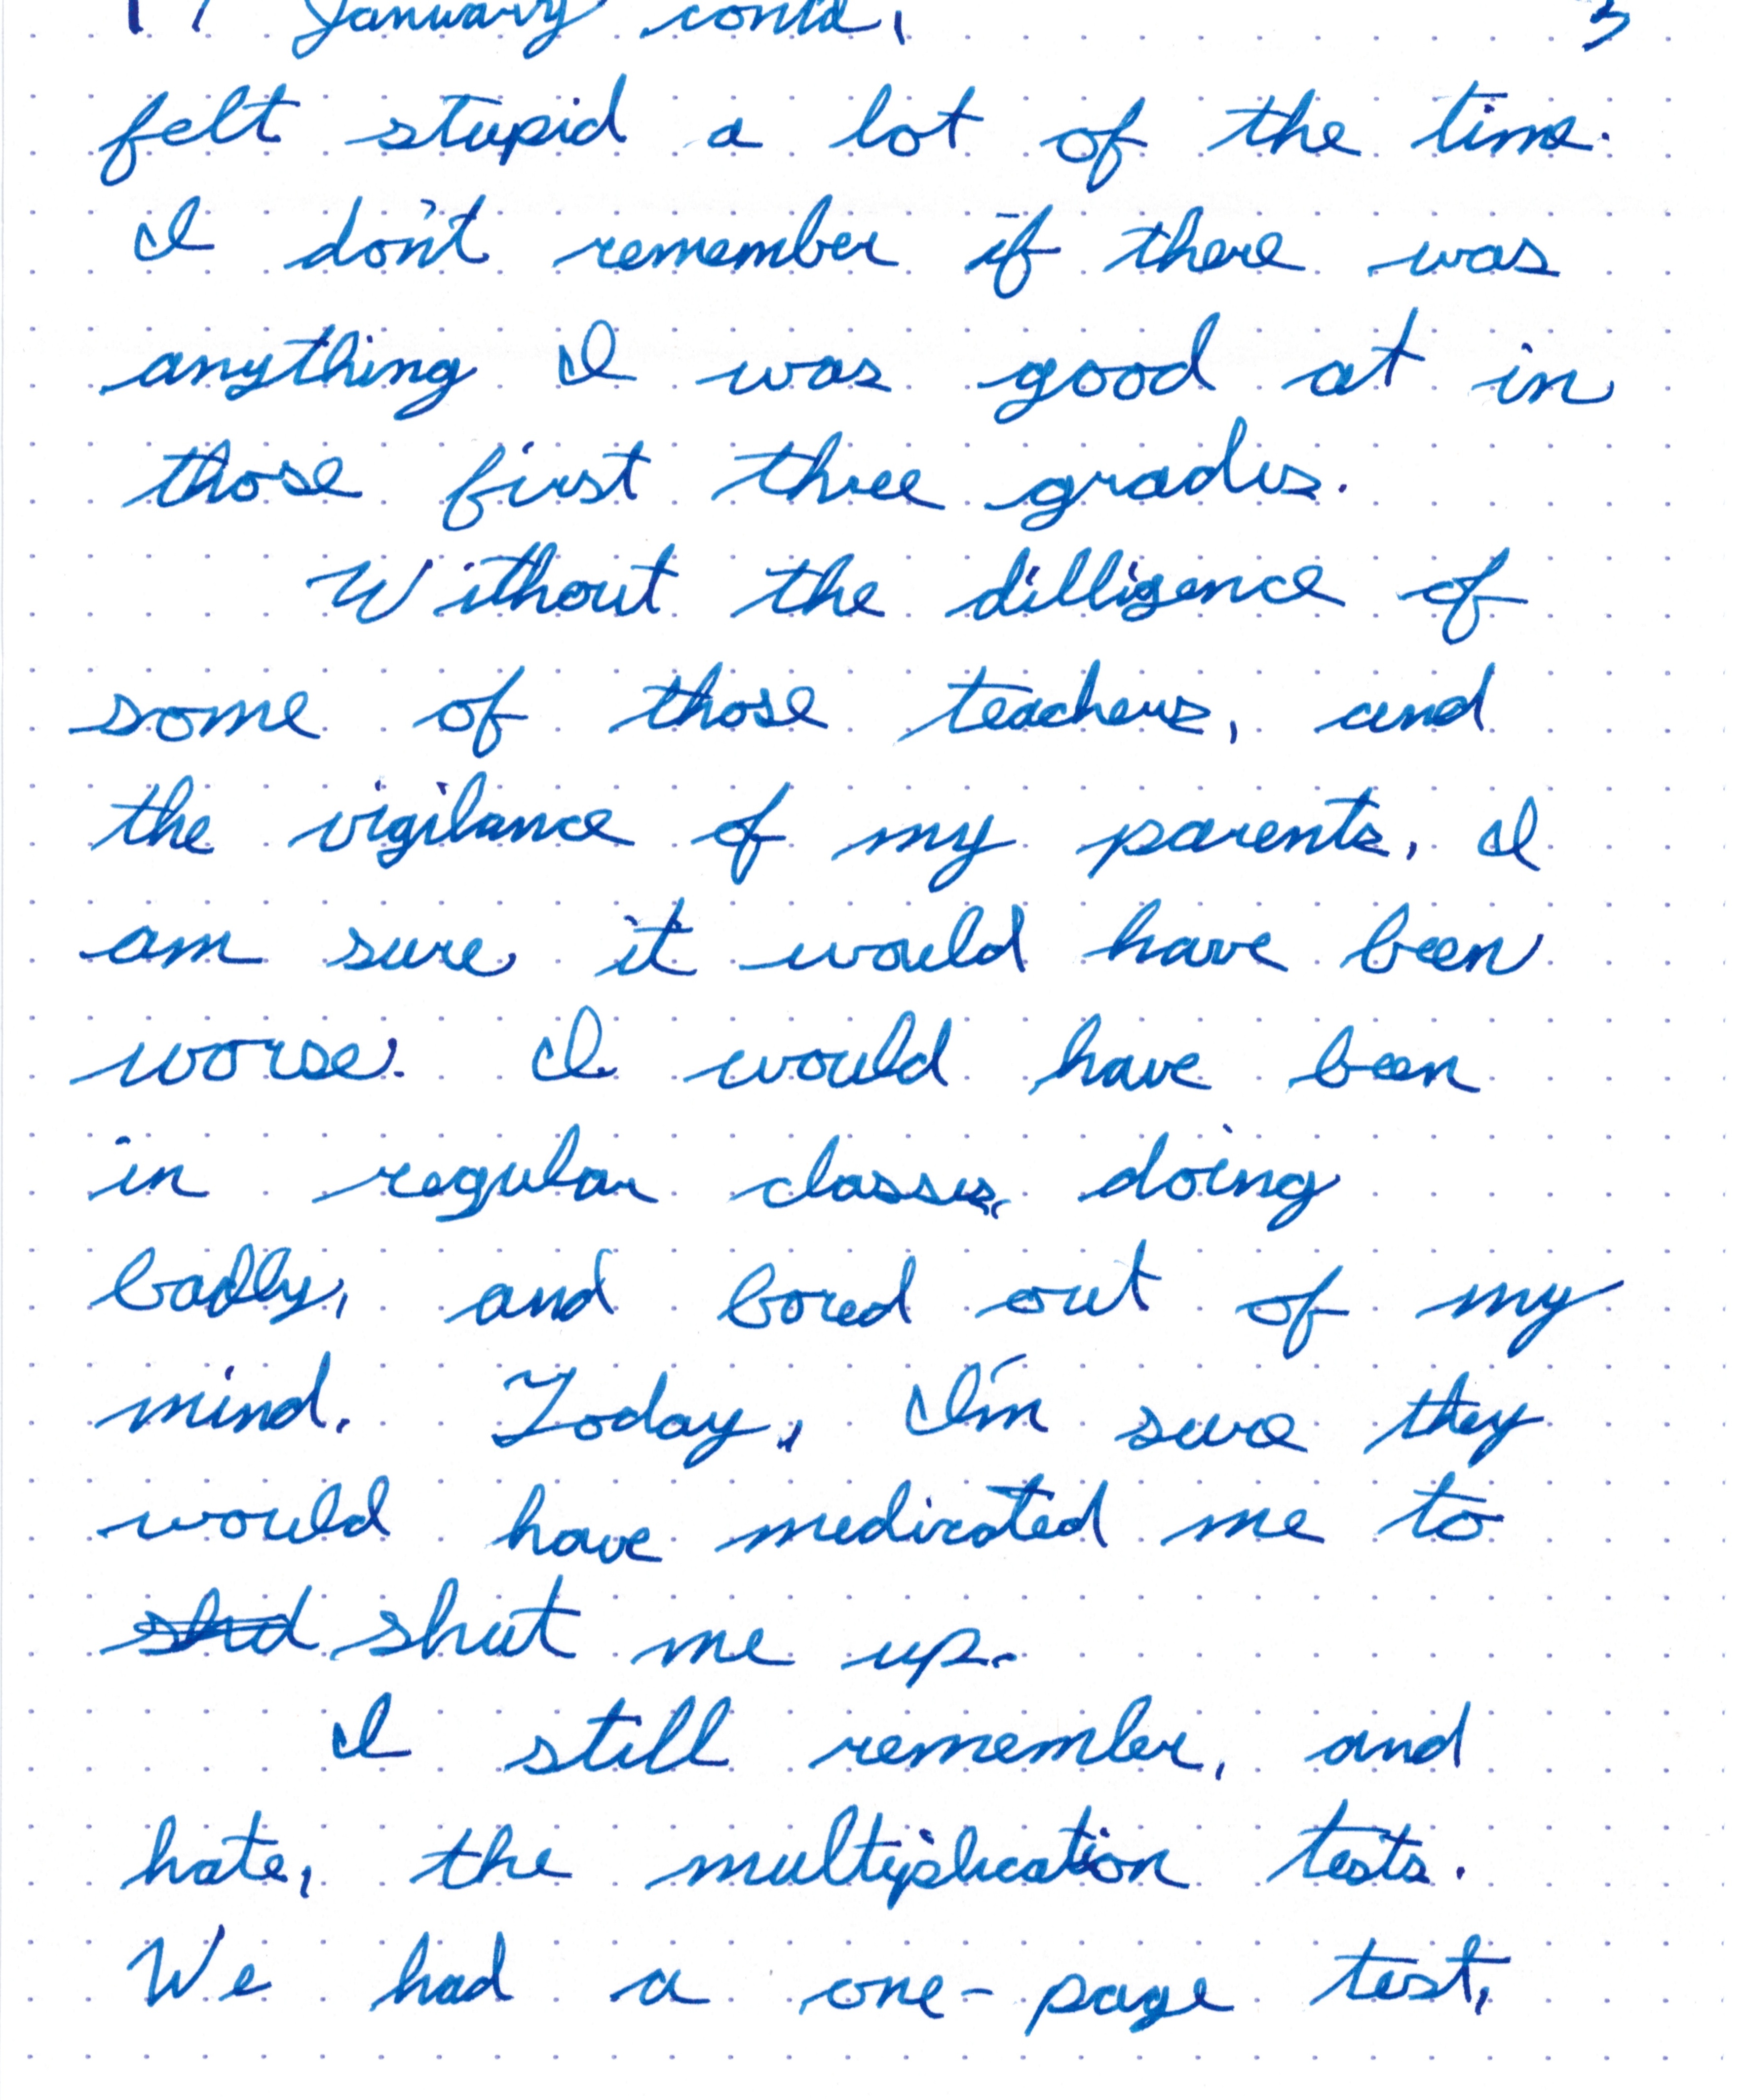 January contd,
felt stupid a lot of the time.
I don't remember if there was
anything I was good at in
those first three grades.
Without the dilligence of
some of those teachers, and
the vigilance of my parents, I
am sure it would have been
worse. I would have been
in regular classes, doing
badly, and bored out of my
mind. Today, I'm sure they
would have medicated me to
shut me up.
I still remember, and
hate, the multiplication tests.
We had a one-page test,